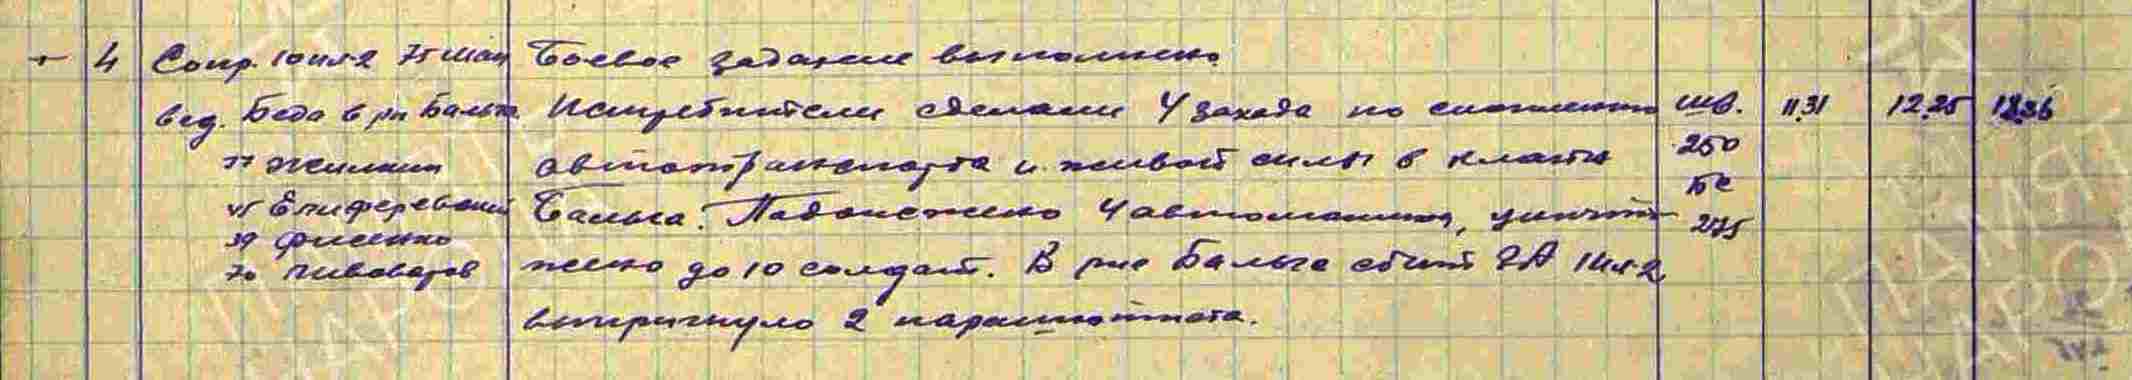 4 Сопр. 10 ил-2 75 шап Боевое задание выполнено.
вед. Беда в р-н Бальга. Истребители сделали 4 захода по скоплению шв. 11.31 12.25 12.36
" Жилкин автотранспорта и живой силы в 250
Епиферовский Бальга. Подожжено 4 автомашины, уничто- БС
39 Фисенко 275
70 Пивоваров жено до 10 солдат. В р-не Бальга сбит ЗА 1 ил-2,
выпрыгнуло 2 парашютиста.
ПАМЯТЬ
НАРОДА